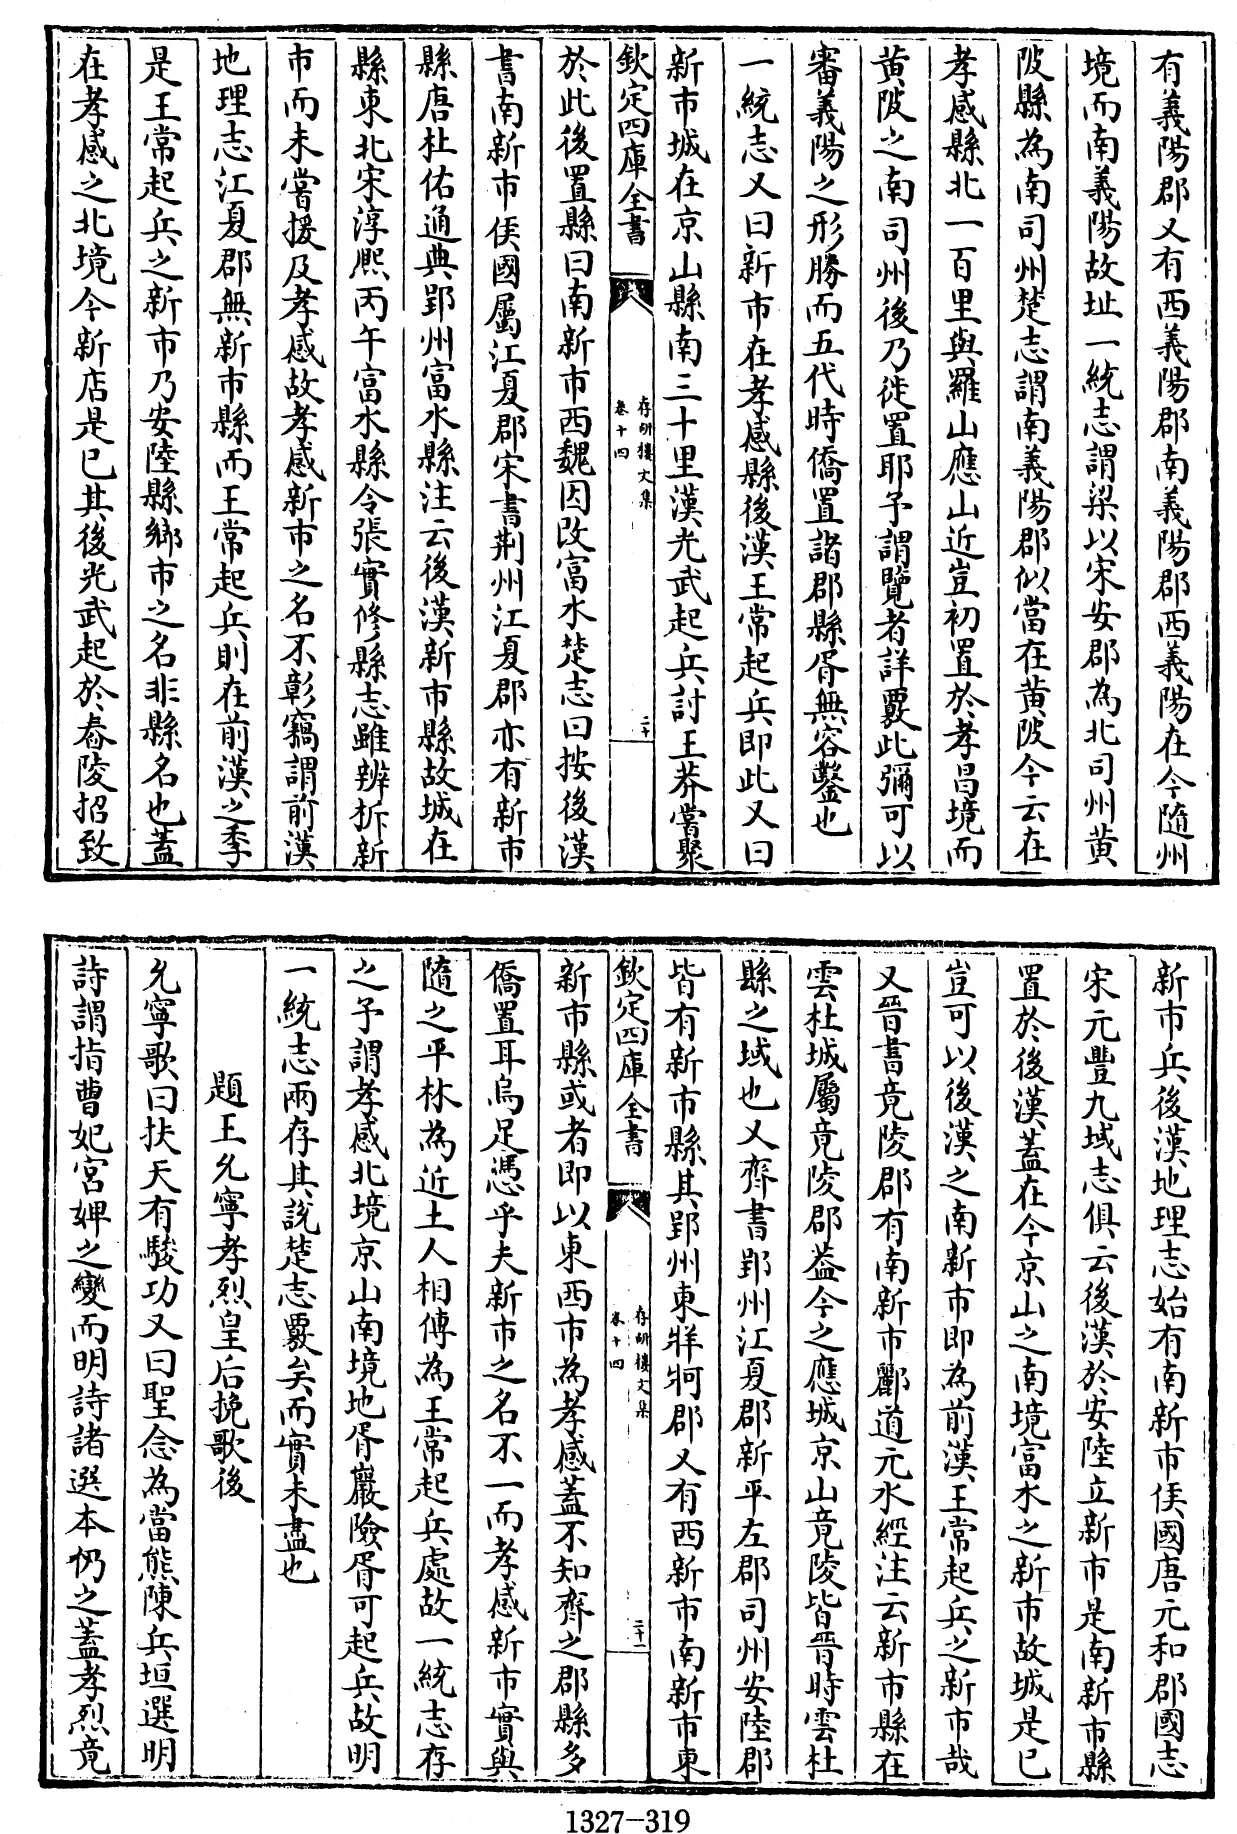 有義陽郡又有西義陽郡南義陽郡西義陽在今隨州
境而南義陽故址一統志謂梁以宋安郡為北司州黄
陂縣為南司州楚志謂南義陽郡似當在黄陂今云在
孝感縣北一百里與羅山應山近豈初置於孝昌境而
黄陂之南司州後乃徙置耶予謂覽者詳覈此彌可以
審義陽之形勝而五代時僑置諸郡縣胥無容鑿也
一統志又曰新市在孝感縣後漢王常起兵即此又曰
新市城在京山縣南三十里漢光武起兵討王莽嘗聚
欽定四庫全書
存研樓文集
卷十四
二十
於此後置縣曰南新市西魏因改富水楚志曰按後漢
書南新市侯國屬江夏郡宋書荆州江夏郡亦有新市
縣唐杜佑通典郢州富水縣注云後漢新市縣故城在
縣東北宋淳熙丙午富水縣令張實修縣志雖辨析新
市而未嘗援及孝感故孝感新市之名不彰竊謂前漢
地理志江夏郡無新市縣而王常起兵則在前漢之季
是王常起兵之新市乃安陸縣鄉市之名非縣名也蓋
在孝感之北境今新店是已其後光武起於舂陵招致
新市兵後漢地理志始有南新市侯國唐元和郡國志
宋元豐九域志俱云後漢於安陸立新市是南新市縣
置於後漢蓋在今京山之南境富水之新市故城是已
豈可以後漢之南新市即為前漢王常起兵之新市哉
又晉書竟陵郡有南新市酈道元水經注云新市縣在
雲杜城屬竟陵郡葢今之應城京山竟陵皆晉時雲杜
縣之域也又齊書郢州江夏郡新平左郡司州安陸郡
皆有新市縣其郢州東牂牁郡又有西新市南新市東
欽定四庫全書
存研樓文集
卷十四
二十一
新市縣或者即以東西市為孝感蓋不知齊之郡縣多
僑置耳烏足憑乎夫新市之名不一而孝感新市實與
隨之平林為近土人相傳為王常起兵處故一統志存
之予謂孝感北境京山南境地胥巖險胥可起兵故明
一統志兩存其說楚志覈矣而實未盡也
題王允寧孝烈皇后挽歌後
允寧歌曰扶天有駿功又曰聖念為當熊陳兵垣選明
詩謂指曹妃宮婢之變而明詩諸選本仍之蓋孝烈竟
1327-319